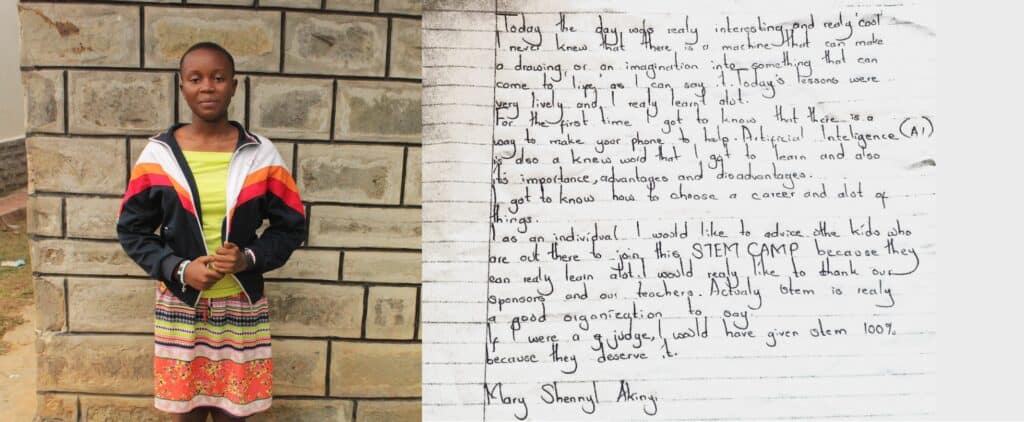 Today the day was realy interesting and realy cool
I never knew that there is a machine that can make
a drawing or an imagination into something that can
'come to live' as I can say it. Today's lessons were
very lively and I realy learnt alot.
For the first time I got to know that there is a
way to make your phone to help. Artificial Inteligence (AI)
is also a knew word that I got to learn and also
its importance, advantages and disadvantages.
I got to know how to choose a career and alot of
things.
I as an individual I would like to advice othe kids who
are out there to join this STEM CAMP because they
can realy learn alot. I would realy like to thank our
sponsors and our teachers. Actualy stem is realy
a good organization to say.
If I were a judge, I would have given stem 100%
because they deserve it.
Mary Shennyl Akinyi